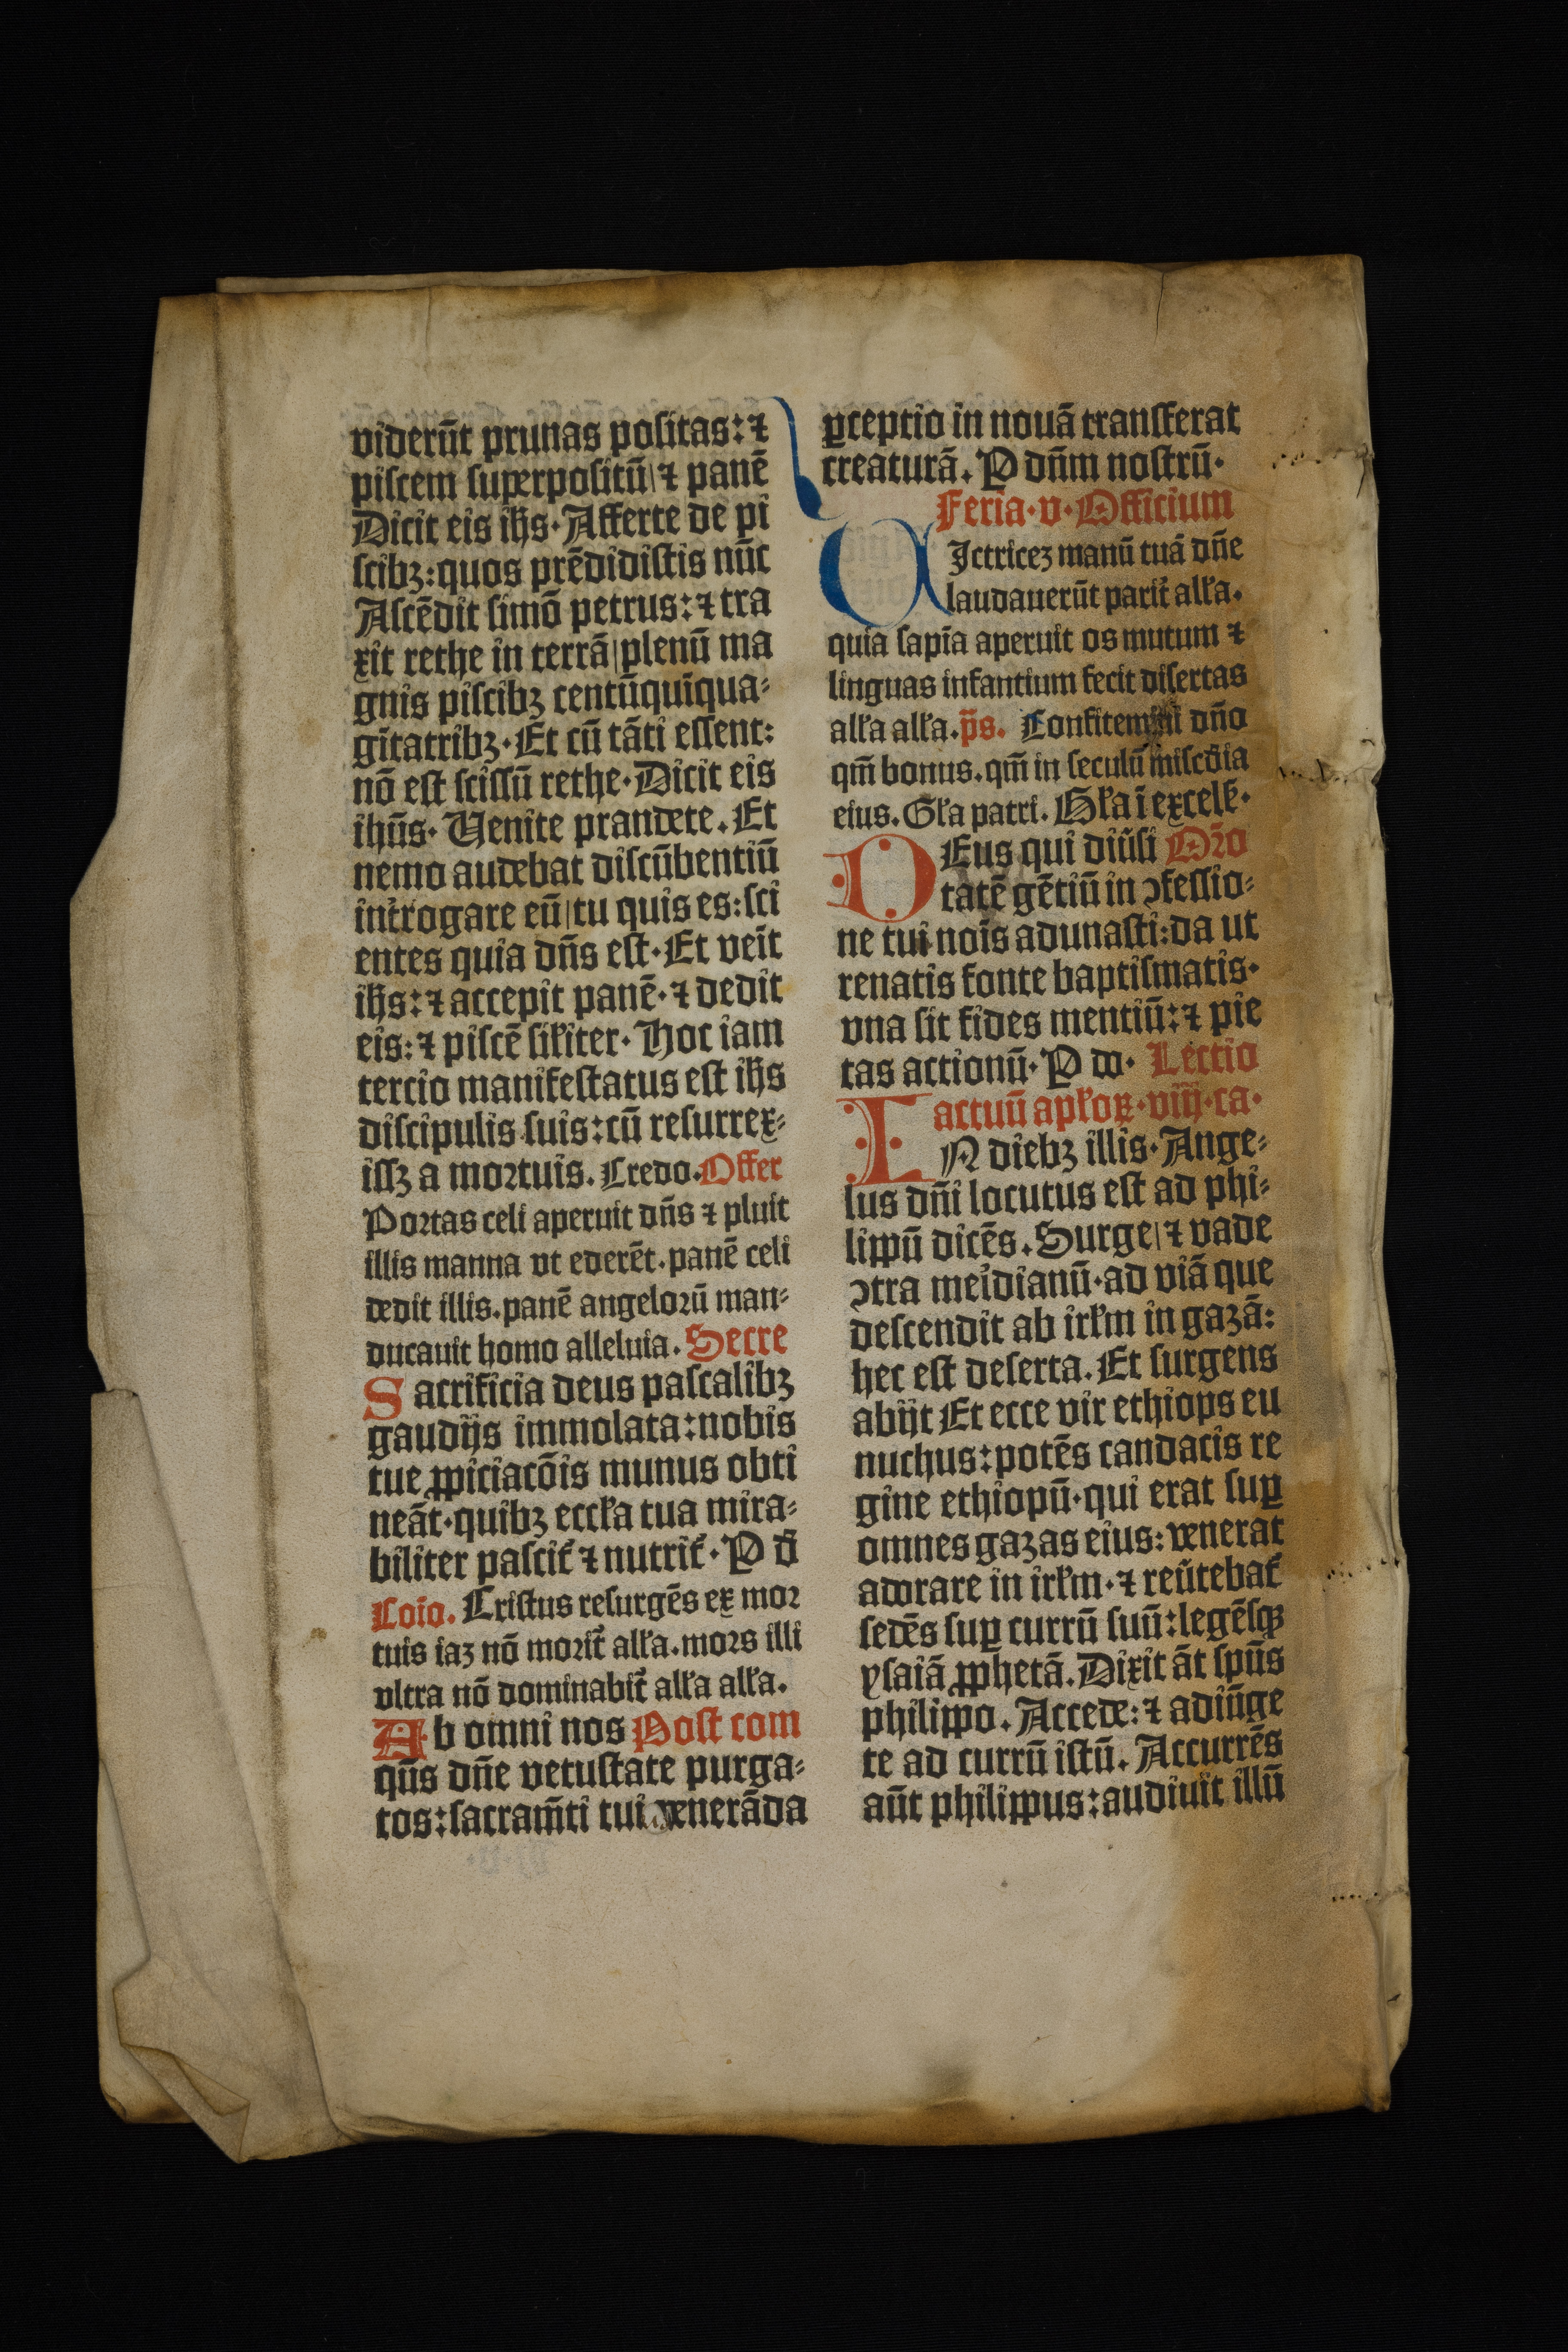 viderūt prunas positas: ⁊
piscem superpositū | ⁊ panē
Dicit eis ihs · Afferte de pi
scibꝫ: quos prēdidistis nūc
Ascēdit simō petrus: ⁊ tra
xit rethe in terrā | plenū ma
gnis piscibꝫ centūquīqua⸗
gītatribꝫ · Et cū tāti essent:
nō est scissū rethe · Dicit eis
ihūs · Uenite prandete. Et
nemo audebat discūbentiū
int̄rogare eū | tu quis es: sci
entes quia dn̄s est · Et veīt
ihs: ⁊ accepit panē · ⁊ dedit
eis: ⁊ piscē sil̛iter · Hoc iam
tercio manifestatus est ihs
discipulis suis: cū resurrex⸗
issꝫ a mortuis. Credo. Offer
Portas celi aperuit dn̄s ⁊ pluit
illis manna vt ederēt. panē celi
dedit illis. panē angelorū man⸗
ducauit homo alleluia. Secre
Sacrificia deus pascalibꝫ
gaudijs immolata: nobis
tue ꝓpiciacōis munus obti
neāt · quibꝫ eccl̛a tua mira⸗
biliter pascit̛ ⁊ nutrit̛ · P d̄
Coīo. Cristus resurgēs ex mor
tuis iaꝫ nō morit̛ all̛a. mors illi
vltra nō dominabit̛ all̛a all̛a.
Ab omni nos Post com
qūs dn̄e vetustate purga⸗
tos: sacram̄ti tui venerāda
ꝑceptio in nouā transferat
creaturā. P dn̄m nostrū ·
Feria · v · Officium
UIctriceꝫ manū tuā dn̄e
laudauerūt parit̛ all̛a.
quia sapīa aperuit os mutum ⁊
linguas infantium fecit disertas
all̛a all̛a. p̄s. Confitemini dn̄o
qm̄ bonus. qm̄ in seculū mīscd̄ia
eius. Gl̛a patri. Gl̛a ī excels̛ ·
DEus qui diūsi Or̄o
tatē gētiū in ꝯfessio⸗
ne tui noīs adunasti: da ut
renatis fonte baptismatis ·
vna sit fides mentiū: ⁊ pie
tas actionū · P do · Lectio
actuū apl̛oꝝ · viij · ca ·
IN diebꝫ illis · Ange⸗
lus dn̄i locutus est ad phi⸗
lippū dicēs. Surge | ⁊ vade
ꝯtra meīdianū · ad viā que
descendit ab irl̛m in gazā:
hec est deserta. Et surgens
abijt Et ecce vir ethiops eu
nuchus: potēs candacis re
gine ethiopū · qui erat suꝑ
omnes gazas eius: venerat
adorare in irl̛m · ⁊ reūtebat̛
sedēs suꝑ currū suū: legēsqꝫ
ysaiā ꝓphetā. Dixit āt spūs
philippo. Accede: ⁊ adiūge
te ad currū istū. Accurrēs
aūt philippus: audiuit illū